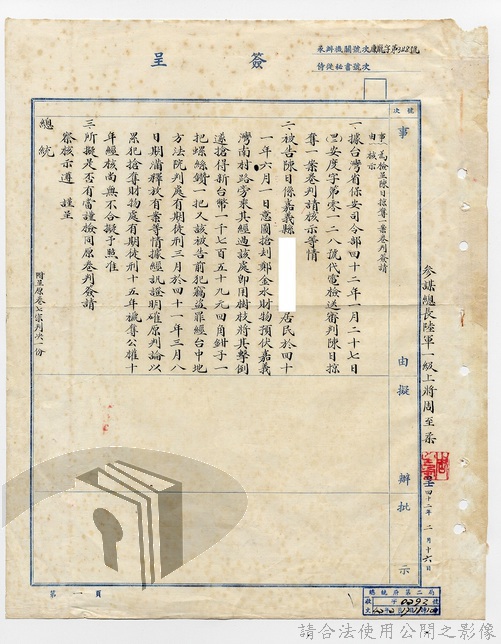 簽呈
承辦機關號次
侍從秘書號次
號次
事由擬辦批示
事由 為檢呈陳日掠奪一案卷判簽請核示
一、據台灣省保安司令部四十二年一月二十七日
安度字第零一二八號代電檢送審判陳日掠
奪一案卷判請核示等情
二、被告陳日係嘉義縣
居民於四十
一年六月一日意圖搶刼鄭金水財物預伏嘉義
灣南村路旁來其經過該處卽用樹枝將其擊倒
遂搶得新台幣一千七百五十九元四角鉗子一
把螺絲鑽一把又該被告前犯竊盜罪經台中地
方法院判處有期徒刑三月於四十一年三月八
日期滿釋放有案等情據經訊證明確原判論以
累犯搶奪財物處有期徒刑十五年褫奪公權十
年經核尚無不合擬予照准
三、所擬是否有當謹檢同原卷判簽請
察核示遵 謹呈
總統
附呈原卷七宗判決一份
參謀總長陸軍一級上將周至柔
四十二年二月十六日
總統府第二局
收文
第一頁
請合法使用公開之影像